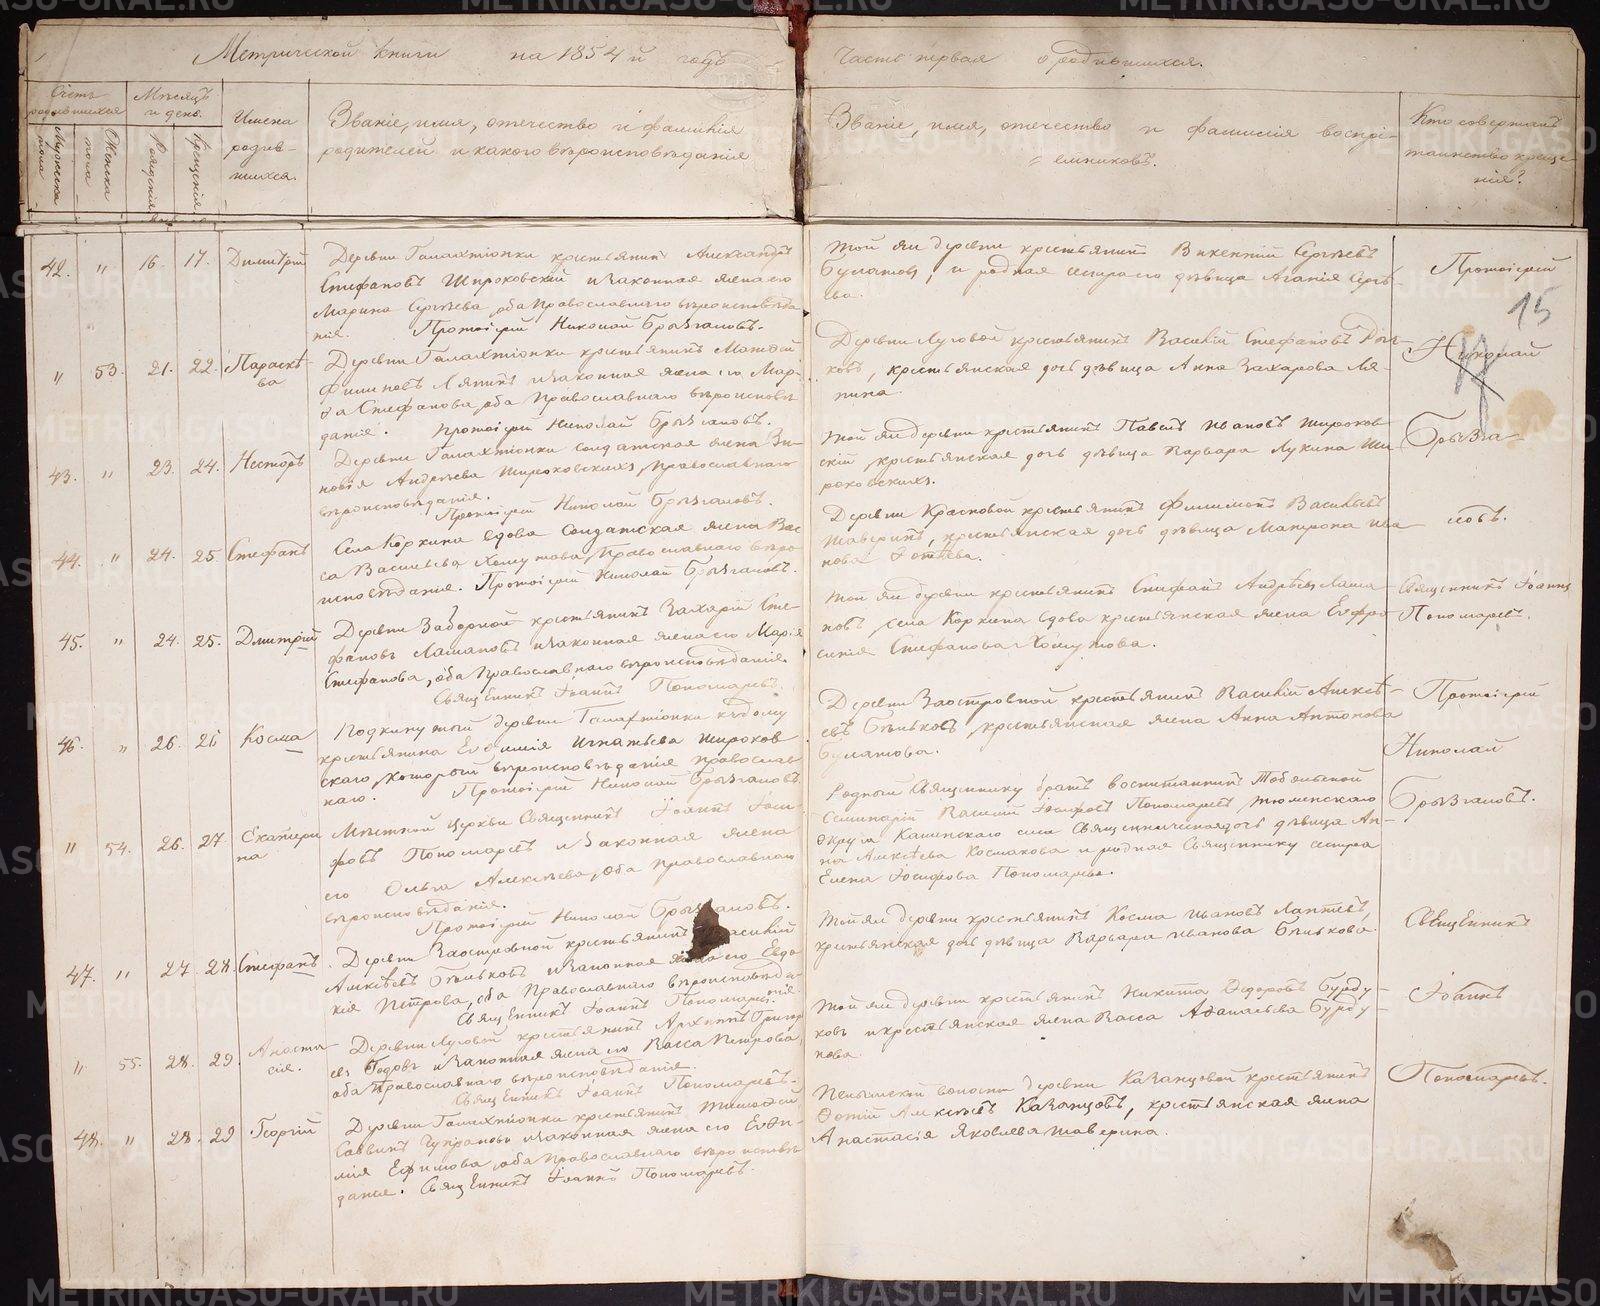 Метрической книги на 1854й годъ
Часть первая о родившихся.
Счетъ родившихся
Мужеска пола
Женска пола
Мѣсяцъ и день.
Рожденія
Крещенія
Имена родив-
шихся.
Званіе, имя, отчество и фамилія
родителей и какого вѣроисповѣданія
Званіе, имя, отчество и фамилія воспрі-
емниковъ.
Кто совершалъ
таинство креще-
нія?
15
42. " 16. 17. Димитрій
Деревни Галахтіонки крестьянинъ Александръ
Стефановъ Широковскій и законная жена его
Марина Сергѣева, оба Православнаго вѣроисповѣда
нія. Протоіерей Николай Брызгаловъ.
Той же деревни крестьянинъ Викентій Сергѣевъ
Булатовъ, и родная сестра его дѣвица Агапія Сергѣ-
ева.
Протоіерей
" 53. 21. 22. Параскѣ-
ва
Деревни Галахтіонки крестьянинъ Матвѣй
Филиповъ Ляпинъ и законная жена его Мар-
ѳа Стефанова, оба Православнаго вѣроисповѣ
данія. Протоіерей Николай Брызгаловъ.
Деревни Луговой крестьянинъ Василій Стефановъ
ковъ, крестьянская дочь дѣвица Анна Захарова Ля-
пина.
Николай
43. " 23. 24. Несторъ
Деревни Галахтіонки солдатская жена Зи-
новія Андреева Широковскихъ, Православнаго
вѣроисповѣданія.
Протоіерей Николай Брызгаловъ.
Той же деревни крестьянинъ Павелъ Ивановъ Широков
скій, крестьянская дочь дѣвица Варвара Лукина Ши
роковскихъ.
Брызга-
44. " 24. 25. Стефанъ
Села Коркина вдова Солдатская жена Вас
са Васильева Хомутова, Православнаго вѣро
исповѣданія. Протоіерей Николай Брызгаловъ.
Деревни Красновой крестьянинъ Филимонъ Васильевъ
Шаверинъ, крестьянская дочь дѣвица Матрона Ива
нова Фотѣева.
ловъ.
45. " 24. 25. Дмитрій
Деревни Заборной крестьянинъ Захарій Сте-
фановъ Лашановъ и законная жена его Марія
Стефанова, оба Православнаго вѣроисповѣданія.
Священникъ Іоаннъ Пономаревъ.
Той же деревни крестьянинъ Стефанъ Андрѣевъ Лаша-
новъ, села Коркина вдова крестьянская жена Евфро
синія Стефанова Хомутова.
Священникъ Іоаннъ
Пономаревъ.
46. " 26. 26 Косма
Подкинутый деревни Галахтіонки къ дому
крестьянина Евѳимія Игнатьева Широков
скаго, который вѣроисповѣданія Православ
наго. Протоіерей Николай Брызгаловъ.
Деревни Заостровной крестьянинъ Василій Алексѣ-
евъ Бѣльковъ, крестьянская жена Анна Антонова
Булатова.
Протоіерей
Николай
Брызгаловъ.
" 54. 26. 27. Екатери
на
Мѣстной церкви Священникъ Іоаннъ Іоси-
фовъ Пономаревъ и законная жена
его Ольга Алексѣева, оба Православнаго
вѣроисповѣданія.
Протоіерей Николай Брызгаловъ.
Родный Священнику братъ воспитанникъ Тобольской
Семинаріи Василій Іосифовъ Пономаревъ, Тюменскаго
округа Каменскаго села Священническая дочь дѣвица Ан-
на Алексѣева Космакова и родная Священнику сестра
Елена Іосифова Пономарева.
47. " 27. 28. Стефанъ.
Деревни Заостровной крестьянинъ Василій
Алексѣевъ Бѣльковъ и законная жена его Евдо
кія Петрова, оба Православнаго вѣроисповѣда
нія.
Священникъ Іоаннъ Пономаревъ.
Той же деревни крестьянинъ Косма Ивановъ Лаптевъ,
крестьянская дочь дѣвица Варвара Иванова Бѣлькова.
Священникъ
" 55. 28. 29. Анаста
сія.
Деревни Луговой крестьянинъ Архипъ Григорь
евъ Годовъ и законная жена его Васса Петрова,
оба Православнаго вѣроисповѣданія.
Священникъ Іоаннъ Пономаревъ.
Той же деревни крестьянинъ Никита Ѳедоровъ Бурду-
ковъ и крестьянская жена Васса Аѳанасьева Бурду-
кова.
Іоаннъ
48. " 28. 29 Георгій
Деревни Галахтіонки крестьянинъ Тимоѳей
Саввинъ Чупрановъ и законная жена его Евѳи-
мія Ефимова, оба Православнаго вѣроисповѣ
данія. Священникъ Іоаннъ Пономаревъ.
волости деревни Казанцовой крестьянинъ
Ѳотій Алексѣевъ Казанцовъ, крестьянская жена
Анастасія Яковлева Шаверина.
Пономаревъ.
METRIKI.GASO-URAL.RU